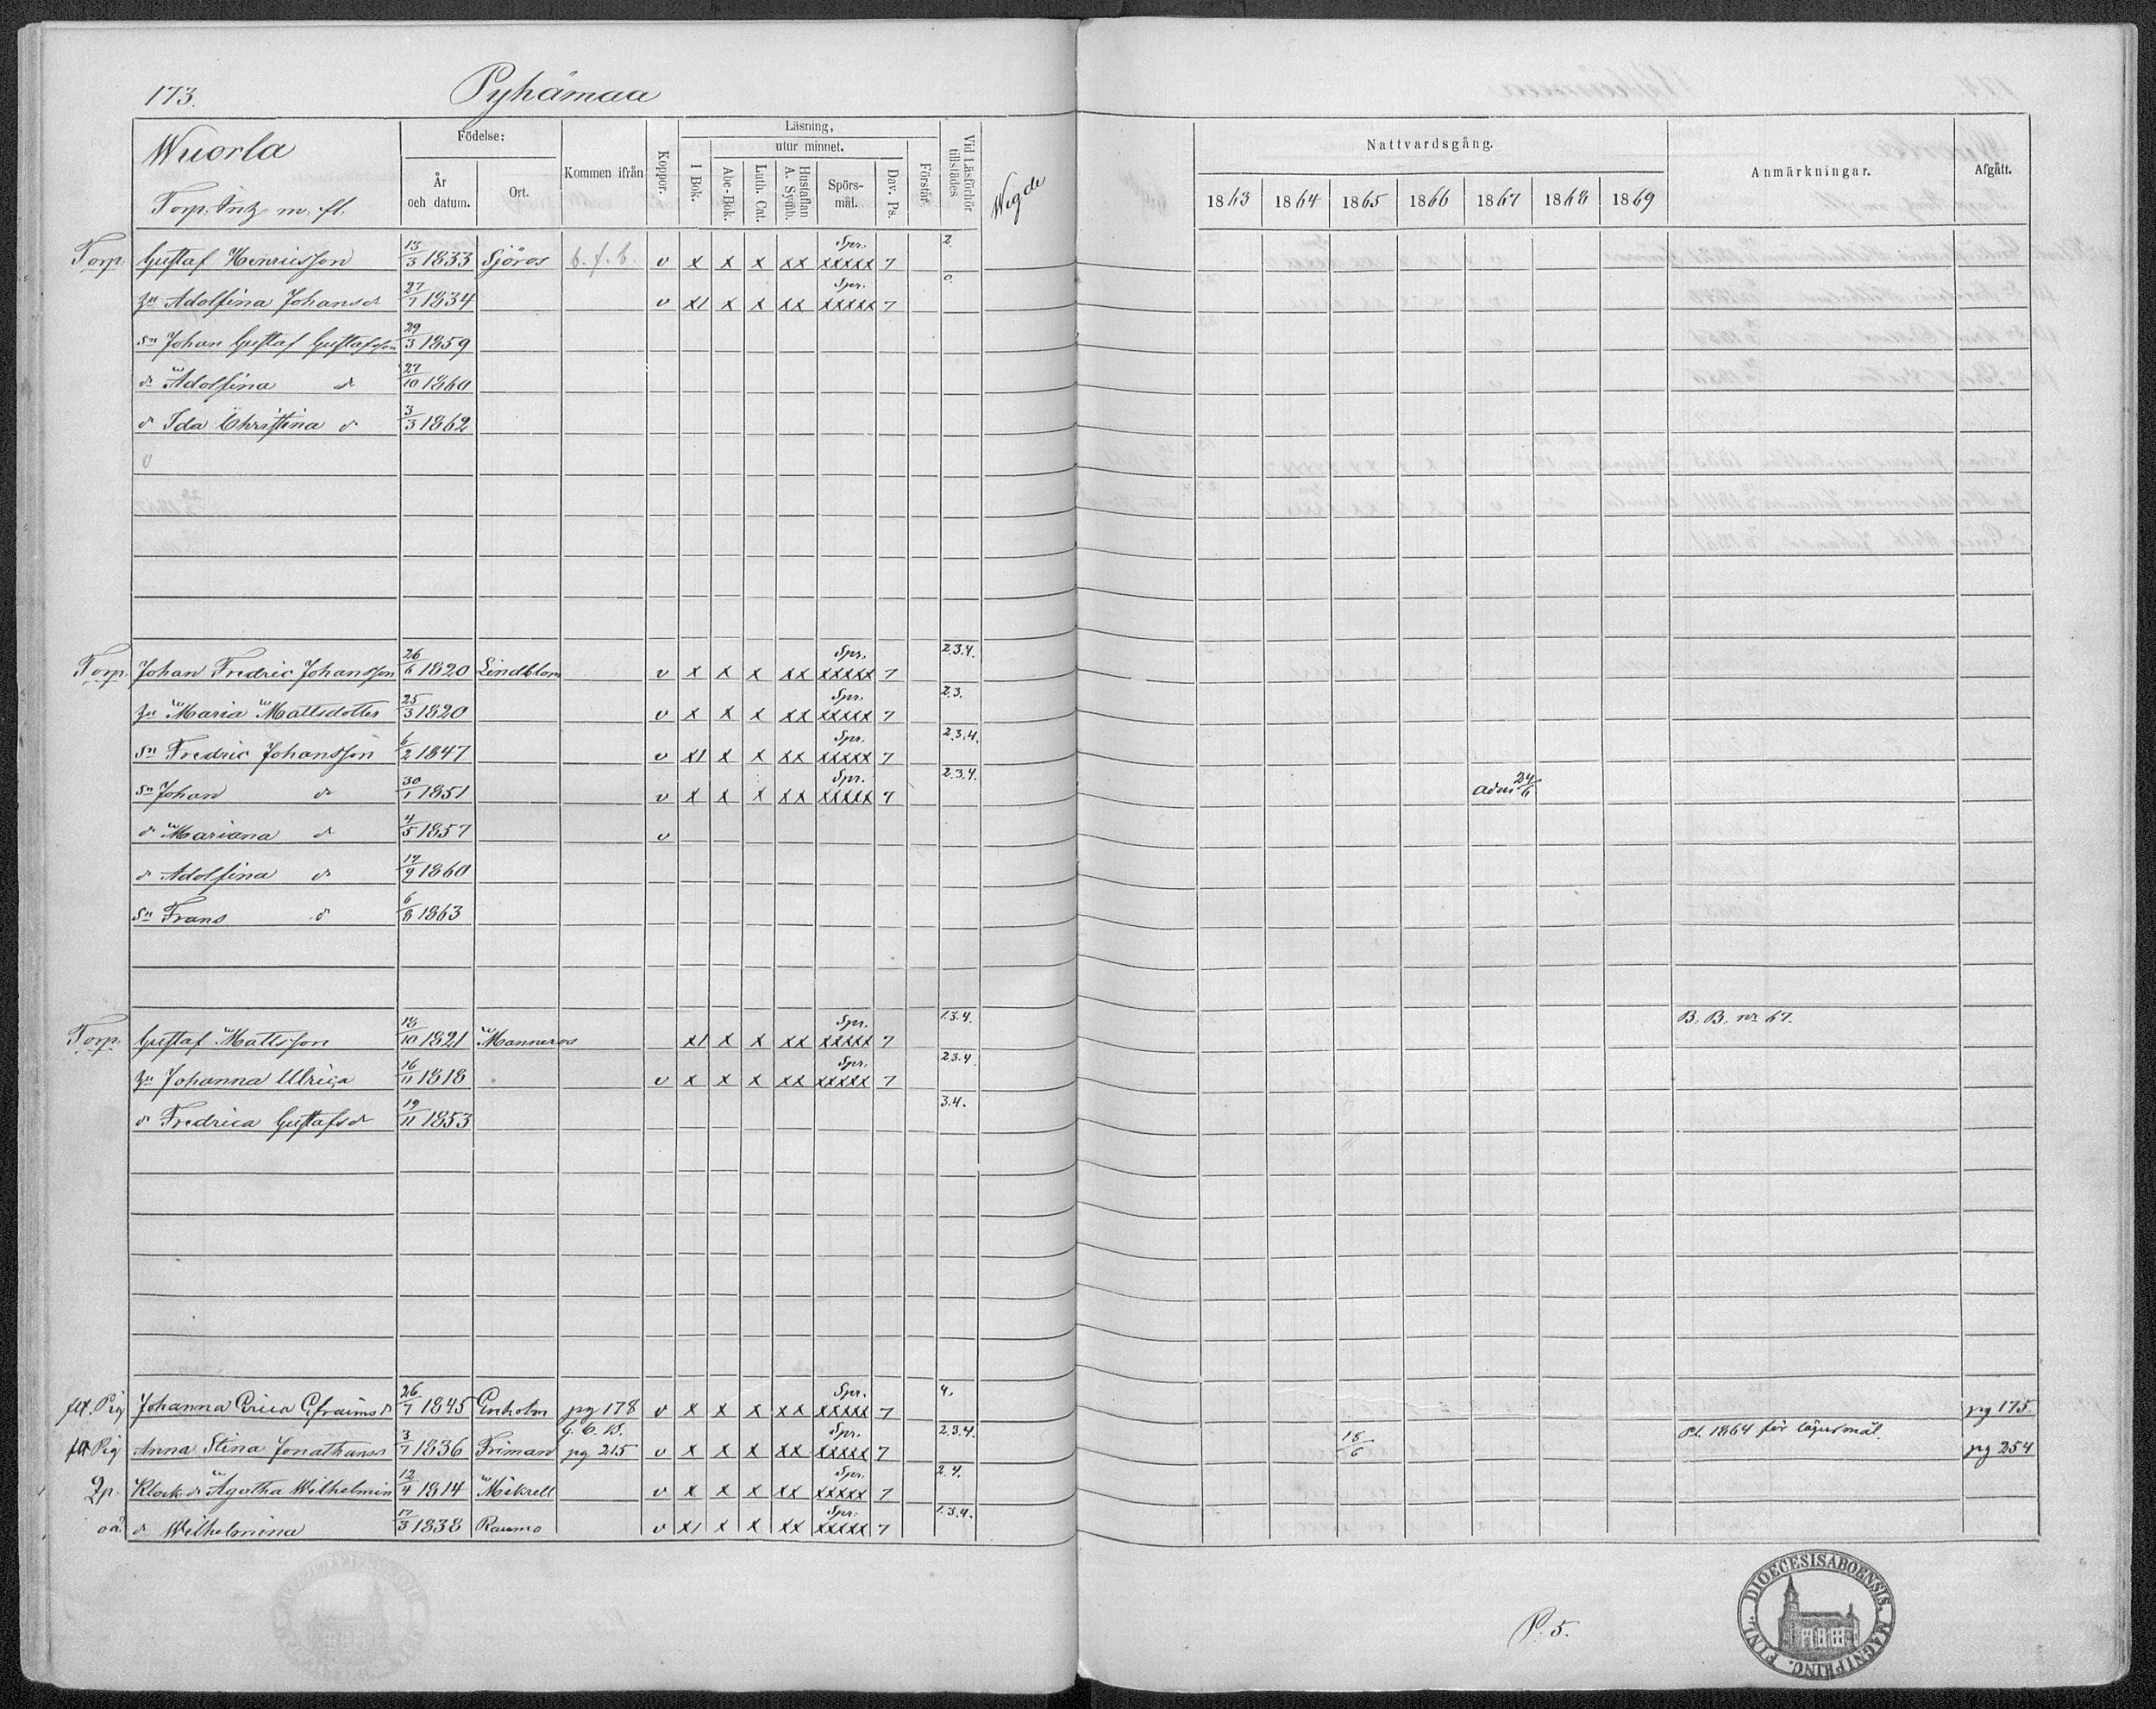 173. Pyhämaa
Wuorla
Torp. Inh. m. fl.
Födelse:
År och datum.
Ort.
Kommen ifrån
Koppor.
Läsning,
utur minnet.
I Bok.
Abc-Bok.
Luth. Cat.
Hustaflan A. Symb.
Spörsmål.
Dav. Ps.
Förstår
Vid Läsförhör tillstädes
Wigde
Nattvardsgång.
1863 1864 1865 1866 1867 1868 1869
Anmärkningar.
Afgått.
Torp. Gustaf Henricsson 13/3 1833 Sjöros b. f. b. v x x x xx Spr. xxxxx 7 2.
Hu Adolfina Johansd 27/7 1834 v x1 x x xx Spr. xxxxx 7 0.
Sn Johan Gustaf Gustafsson 29/3 1859
dr Adolfina d 27/10 1860
d Ida Christina d 3/3 1862
Torp. Johan Fredric Johansson 26/6 1820 Lindblom v x x x xx Spr. xxxxx 7 2.3.4.
Hu Maria Mattsdotter 25/3 1820 v x x x xx Spr. xxxxx 7 2.3.
Sn Fredric Johansson 6/2 1847 v x1 x x xx Spr. xxxxx 7 2.3.4.
Sn Johan d 30/1 1851 v x x x xx Spr. xxxxx 7 2.3.4. adm 24/6
d Mariana d 4/5 1857 v
d Adolfina d 17/9 1860
Sn Frans d 6/8 1863
Torp. Gustaf Mattsson 18/10 1821 Manneros x1 x x xx Spr. xxxxx 7 1.3.4. B. B. nr 67.
Hu Johanna Ulrica 16/11 1818 v x x x xx Spr. xxxxx 7 2.3.4.
d Fredrica Gustafsd 19/11 1853 3.4.
fl. Pig Johanna Erica Efraimsd 26/7 1845 Enholm pg 178 v x x x xx Spr. xxxxx 7 4. pg 175.
fl. Pig Anna Stina Jonathansd 3/7 1836 Friman pg 215 v x x x xx Spr. xxxxx 7 2.3.4. 18/6 Pl. 1864 för lägersmål. pg 254
Qp. Klock. d Agatha Wilhelmin 12/4 1814 Mikrell v x x x xx Spr. xxxxx 7 2.4.
oä. d Wilhelmina 17/3 1838 Raumo v x1 x x xx Spr. xxxxx 7 1.3.4.
P. 5.
DIOECESIS ABOENSIS. MAGNI PRINC. FINL.